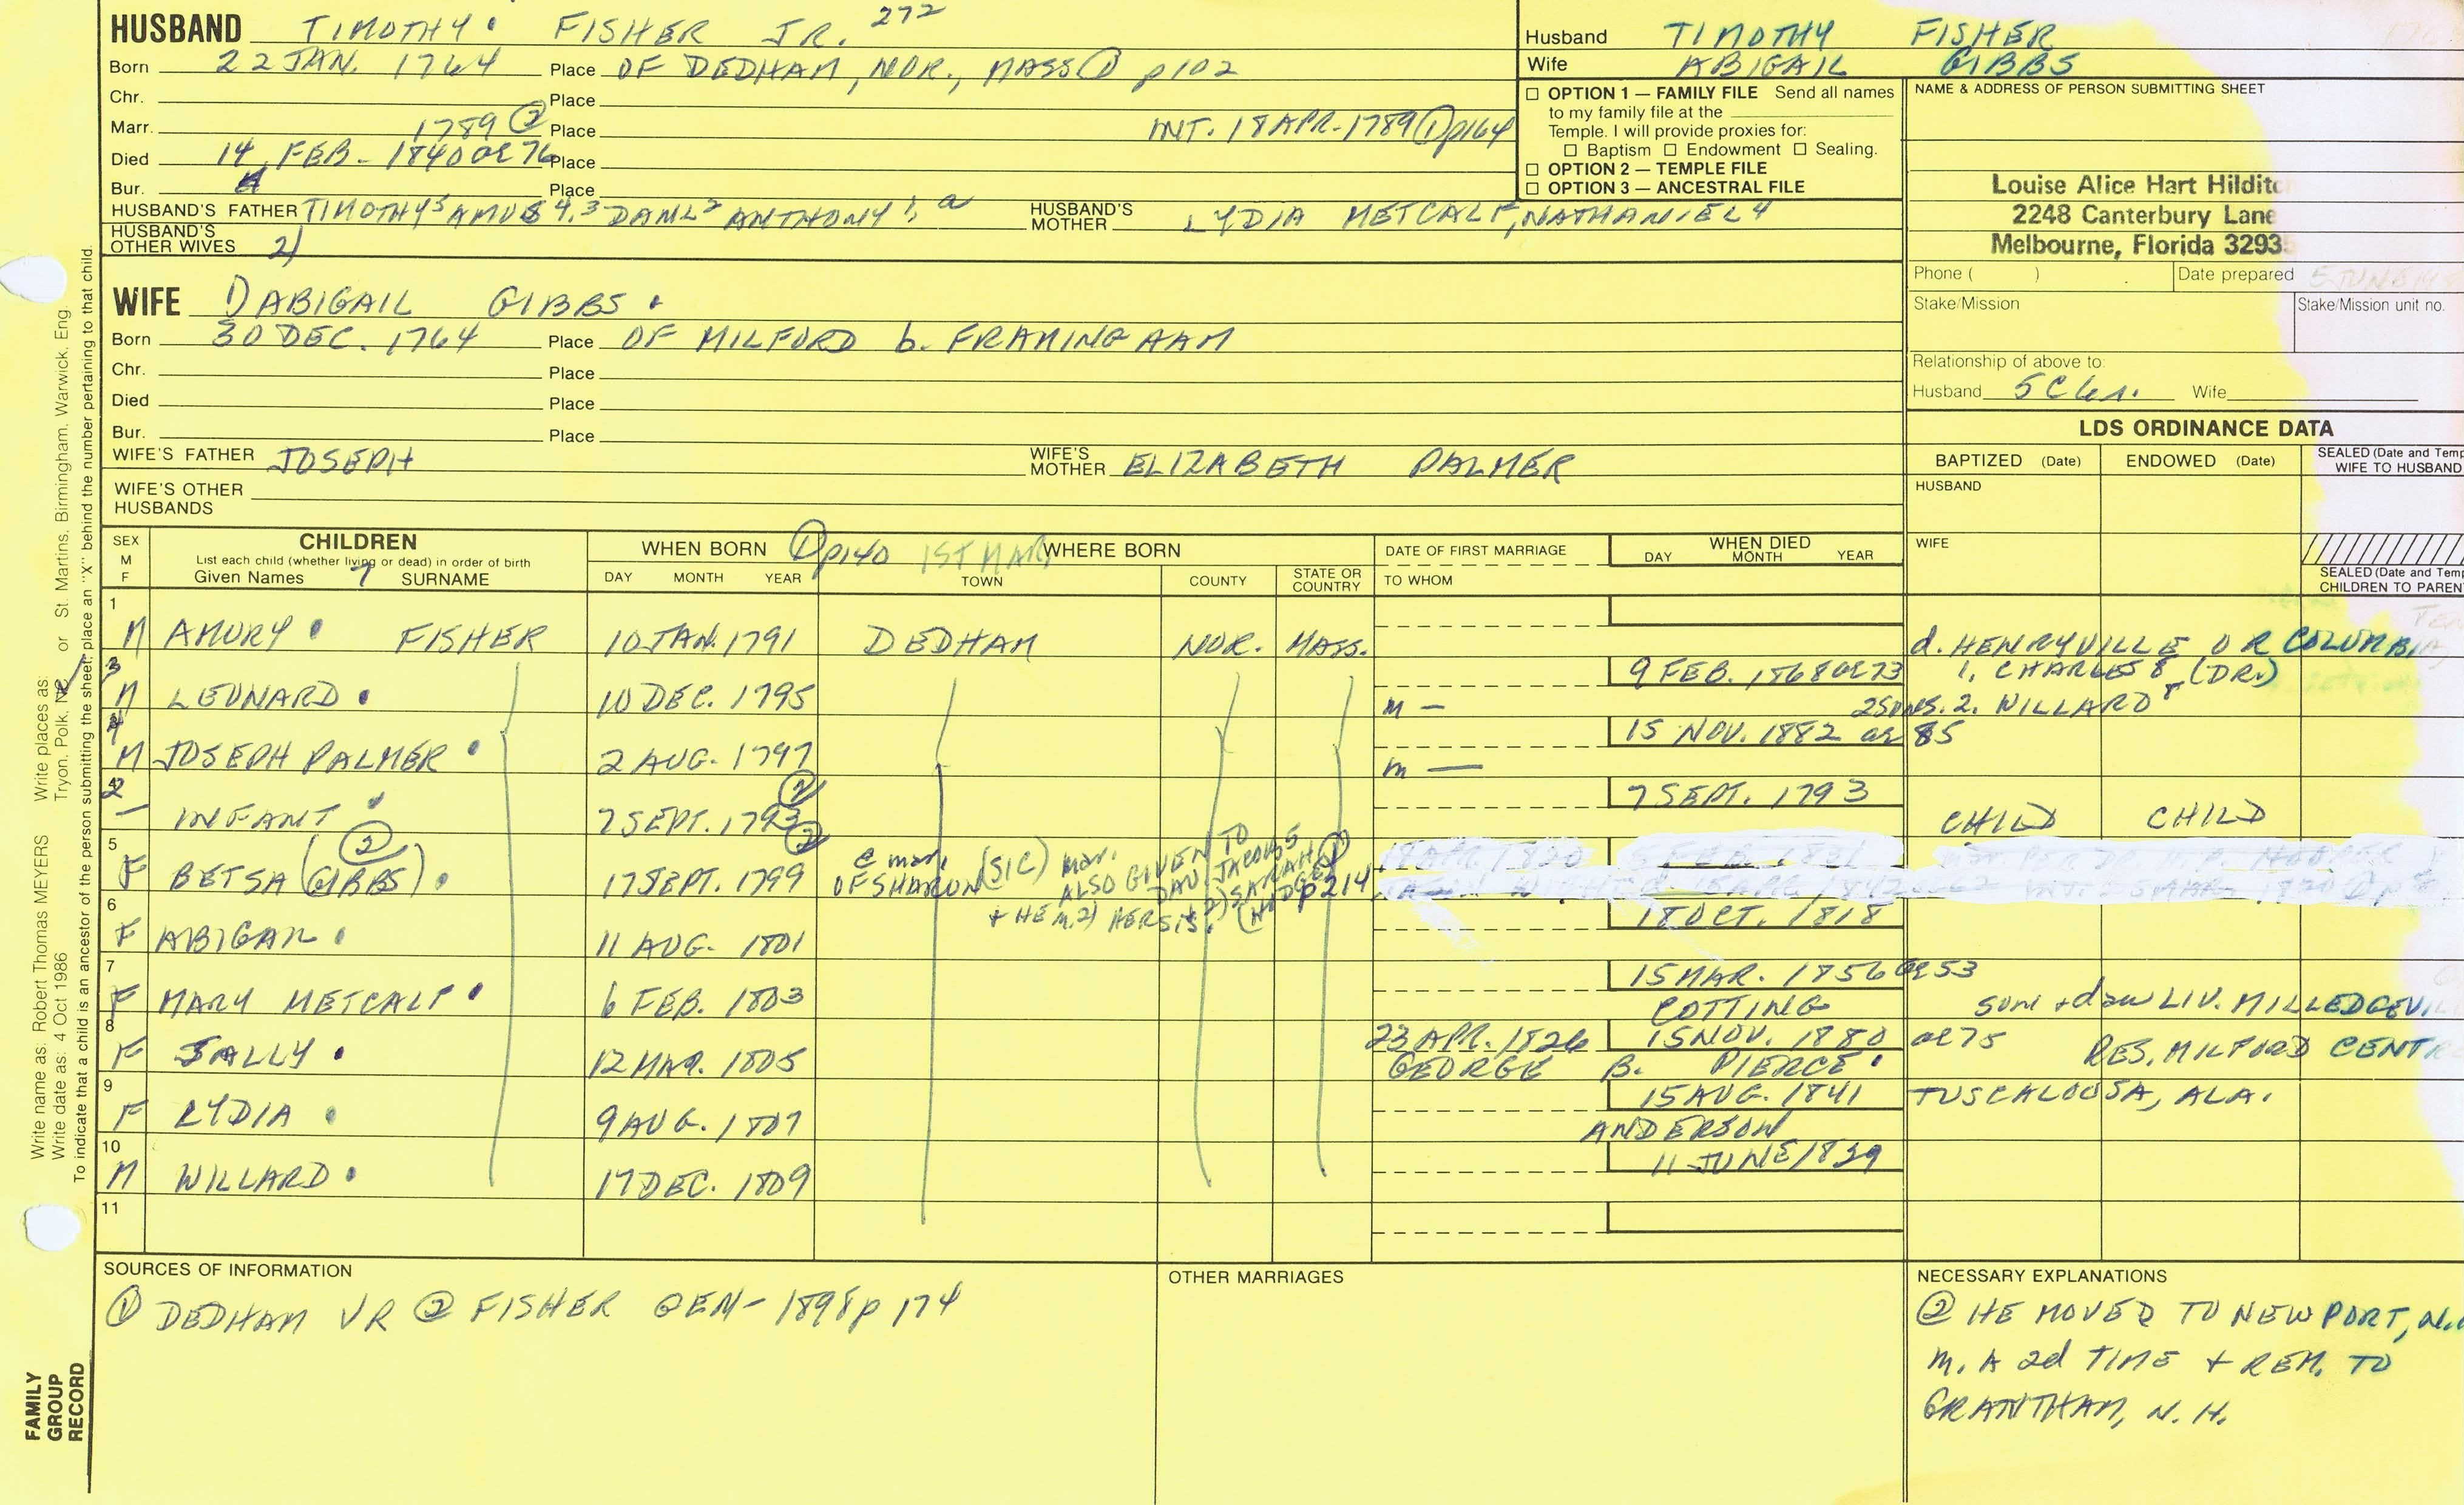 HUSBAND TIMOTHY FISHER JR. 272
Born 22 JAN. 1764 Place OF DEDHAM, NOR., MASS ① p102
Chr. Place
Marr. 1789 ② Place INT. 18 APR. 1789 ① p164
Died 14 FEB - 1840 or 76 Place
Bur. Place
HUSBAND'S FATHER TIMOTHY5 AMOS 4,3 DANL2 ANTHONY1, a HUSBAND'S MOTHER LYDIA METCALF, NATHANIEL4
HUSBAND'S OTHER WIVES 2)
Husband TIMOTHY FISHER
Wife ABIGAIL GIBBS
OPTION 1 — FAMILY FILE Send all names
to my family file at the
Temple. I will provide proxies for:
Baptism Endowment Sealing.
OPTION 2 — TEMPLE FILE
OPTION 3 — ANCESTRAL FILE
NAME & ADDRESS OF PERSON SUBMITTING SHEET
Louise Alice Hart Hilditc
2248 Canterbury Lane
Melbourne, Florida 3293
Phone ( ) Date prepared
Stake/Mission Stake/Mission unit no.
Relationship of above to:
Husband 5C6r. Wife
WIFE 1) ABIGAIL GIBBS
Born 30 DEC. 1764 Place OF MILFORD b. FRAMINGHAM
Chr. Place
Died Place
Bur. Place
WIFE'S FATHER JOSEPH WIFE'S MOTHER ELIZABETH PALMER
WIFE'S OTHER HUSBANDS
LDS ORDINANCE DATA
BAPTIZED (Date) ENDOWED (Date) SEALED (Date and Temp
WIFE TO HUSBAND
HUSBAND
WIFE
SEALED (Date and Temp
CHILDREN TO PARENT
SEX M F CHILDREN
List each child (whether living or dead) in order of birth
Given Names 7 SURNAME
WHEN BORN ① p140 1ST MAR WHERE BORN
DAY MONTH YEAR TOWN COUNTY STATE OR COUNTRY
DATE OF FIRST MARRIAGE
TO WHOM
WHEN DIED
DAY MONTH YEAR
1 M AMORY FISHER 10 JAN. 1791 DEDHAM NOR. MASS. d. HENRYVILLE OR COLUMBIA
3 M LEONARD 10 DEC. 1795 m — 9 FEB. 1868 or 73 1. CHARLES8 (DR.)
2 SONS. 2. WILLARD8
4 M JOSEPH PALMER 2 AUG. 1797 m — 15 NOV. 1882 or 85
2 — INFANT 7 SEPT. 1793 ② 7 SEPT. 1793 CHILD CHILD
5 F BETSA (GIBBS) ② 17 SEPT. 1799 ②
OF SHARON (SIC) mar.
ALSO GIVEN TO
DAU JACOBS
+ HE m. 2) HER SIS. 2) SARAH (HODGES) ① p214
6 F ABIGAIL 11 AUG. 1801 18 OCT. 1818
7 F MARY METCALF 6 FEB. 1803 15 MAR. 1856 or 53
COTTING sons + dau LIV. MILLEDGEVIL
8 F SALLY 12 MAR. 1805 23 APR. 1826 15 NOV. 1880 or 75
GEORGE B. PIERCE RES. MILFORD CENTR
9 F LYDIA 9 AUG. 1807 15 AUG. 1841 TUSCALOOSA, ALA.
ANDERSON
10 M WILLARD 17 DEC. 1809 11 JUNE 1839
11
SOURCES OF INFORMATION
① DEDHAM VR ② FISHER GEN - 1898 p 174
OTHER MARRIAGES
NECESSARY EXPLANATIONS
② HE MOVED TO NEWPORT, N.
m. A 2d TIME + REM. TO
GRANTHAM, N.H.
FAMILY
GROUP
RECORD
Write name as: Robert Thomas MEYERS Write places as: Tryon, Polk, NC or St. Martins, Birmingham, Warwick, Eng.
Write date as: 4 Oct 1986
To indicate that a child is an ancestor of the person submitting the sheet, place an "X" behind the number pertaining to that child.